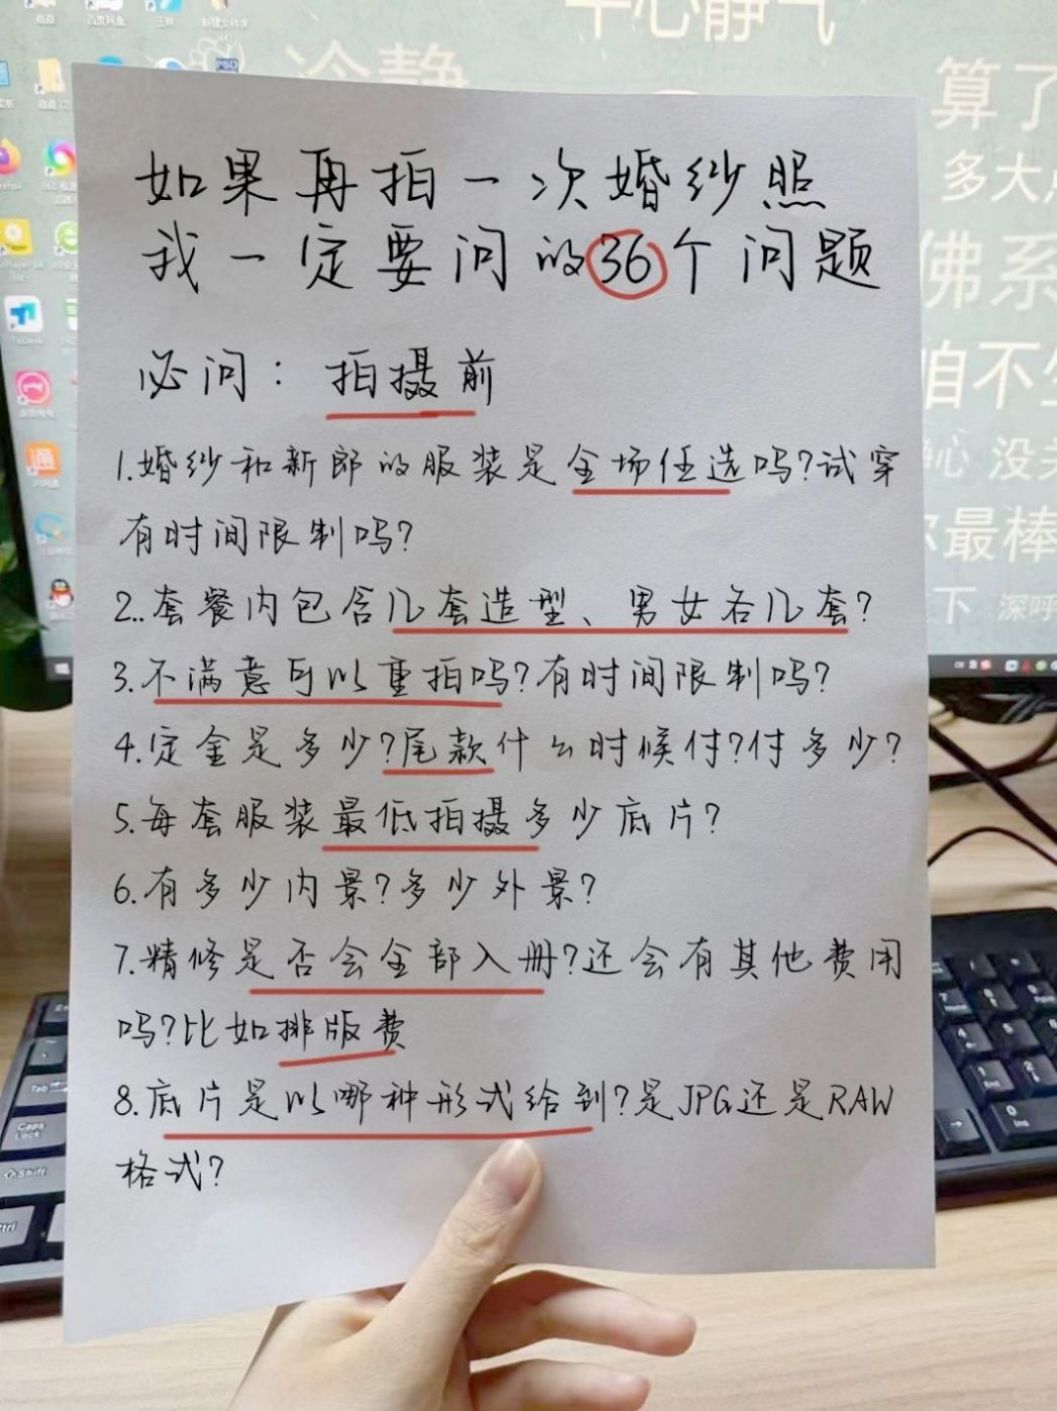 平心静气
冷静
算了
多大
佛系
咱不
静心 没
最棒
下 深呼
如果再拍一次婚纱照
我一定要问的36个问题
必问：拍摄前
1.婚纱和新郎的服装是全场任选吗?试穿
有时间限制吗?
2..套餐内包含几套造型、男女各几套?
3.不满意可以重拍吗?有时间限制吗?
4.定金是多少?尾款什么时候付?付多少?
5.每套服装最低拍摄多少底片?
6.有多少内景?多少外景?
7.精修是否会全部入册?还会有其他费用
吗?比如排版费
8.底片是以哪种形式给到?是JPG还是RAW
格式?
Tab
Caps
Lock
Shift